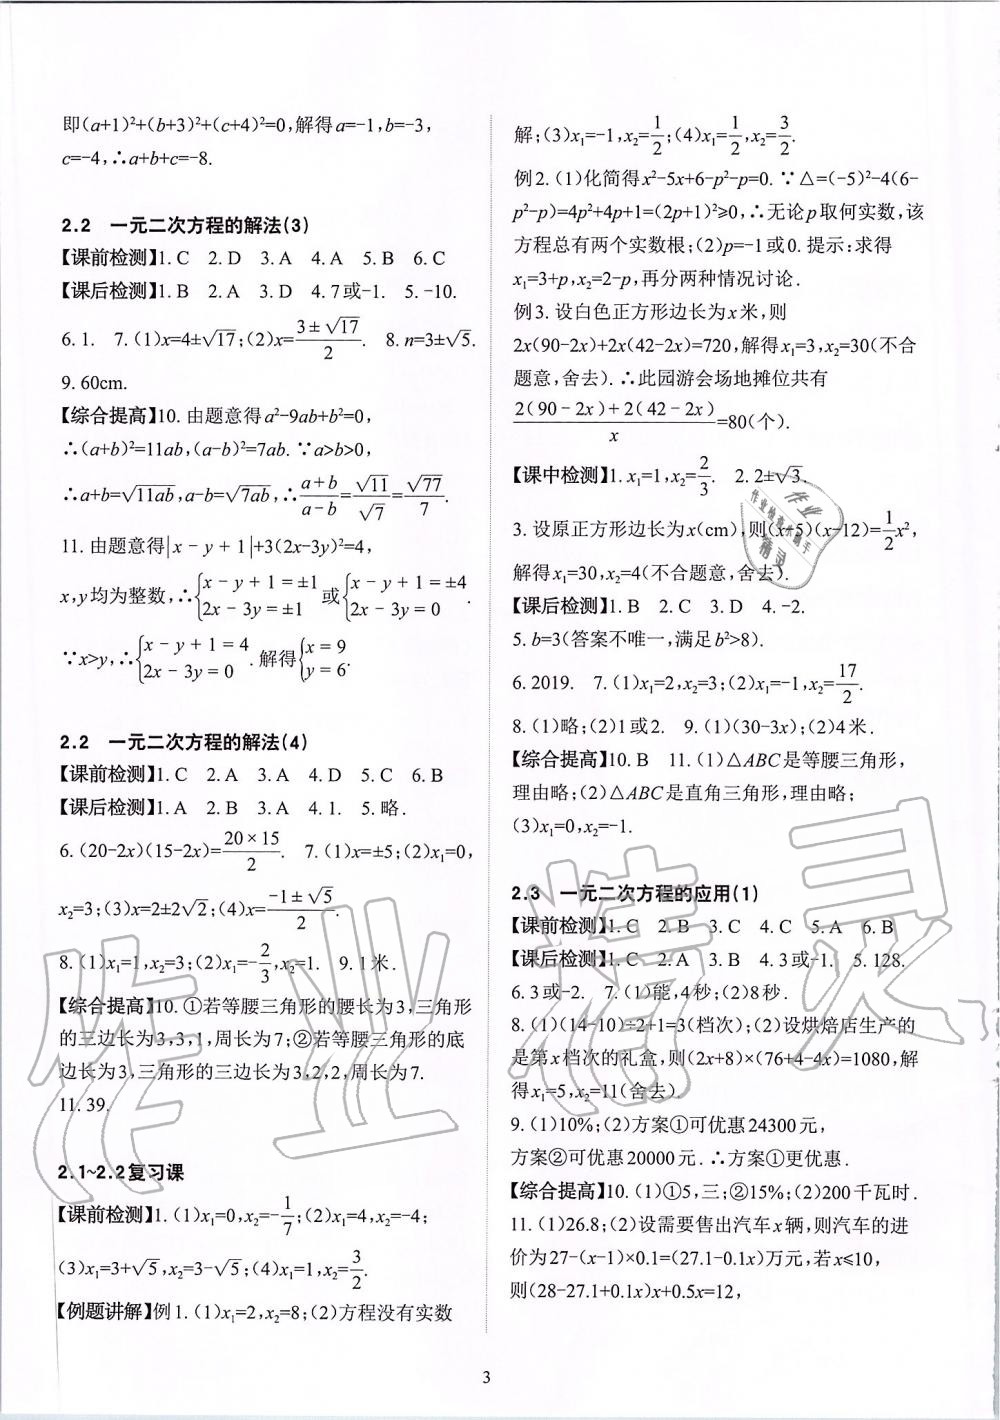 即(a+1)²+(b+3)²+(c+4)²=0,解得a=-1,b=-3,
c=-4,∴a+b+c=-8.
2.2 一元二次方程的解法(3)
【课前检测】1. C 2. D 3. A 4. A 5. B 6. C
【课后检测】1. B 2. A 3. D 4. 7或-1. 5. -10.
6. 1. 7. (1)x=4±√17;(2)x=(3±√17)/2. 8. n=3±√5.
9. 60cm.
【综合提高】10. 由题意得a²-9ab+b²=0,
∴(a+b)²=11ab,(a-b)²=7ab. ∵a>b>0,
∴a+b=√11ab,a-b=√7ab,∴(a+b)/(a-b)=√11/√7=√77/7.
11. 由题意得|x-y+1|+3(2x-3y)²=4,
x,y均为整数,∴{x-y+1=±1 2x-3y=±1 或{x-y+1=±4 2x-3y=0.
∵x>y,∴{x-y+1=4 2x-3y=0. 解得{x=9 y=6.
2.2 一元二次方程的解法(4)
【课前检测】1. C 2. A 3. A 4. D 5. C 6. B
【课后检测】1. A 2. B 3. A 4. 1. 5. 略.
6. (20-2x)(15-2x)=(20×15)/2. 7. (1)x=±5;(2)x₁=0,
x₂=3;(3)x=2±2√2;(4)x=(-1±√5)/2.
8. (1)x₁=1,x₂=3;(2)x₁=-2/3,x₂=1. 9. 1米.
【综合提高】10. ①若等腰三角形的腰长为3,三角形
的三边长为3,3,1,周长为7;②若等腰三角形的底
边长为3,三角形的三边长为3,2,2,周长为7.
11. 39.
2.1~2.2复习课
【课前检测】1. (1)x₁=0,x₂=-1/7;(2)x₁=4,x₂=-4;
(3)x₁=3+√5,x₂=3-√5;(4)x₁=1,x₂=3/2.
【例题讲解】例1. (1)x₁=2,x₂=8;(2)方程没有实数
解;(3)x₁=-1,x₂=1/2;(4)x₁=1/2,x₂=3/2.
例2. (1)化简得x²-5x+6-p²-p=0. ∵△=(-5)²-4(6-
p²-p)=4p²+4p+1=(2p+1)²≥0,∴无论p取何实数,该
方程总有两个实数根;(2)p=-1或0. 提示:求得
x₁=3+p,x₂=2-p,再分两种情况讨论.
例3. 设白色正方形边长为x米,则
2x(90-2x)+2x(42-2x)=720,解得x₁=3,x₂=30(不合
题意,舍去). ∴此园游会场地摊位共有
(2(90-2x)+2(42-2x))/x=80(个).
【课中检测】1. x₁=1,x₂=2/3. 2. 2±√3.
3. 设原正方形边长为x(cm),则(x+5)(x-12)=1/2x²,
解得x₁=30,x₂=4(不合题意,舍去).
【课后检测】1. B 2. C 3. D 4. -2.
5. b=3(答案不唯一,满足b²>8).
6. 2019. 7. (1)x₁=2,x₂=3;(2)x₁=-1,x₂=17/2.
8. (1)略;(2)1或2. 9. (1)(30-3x);(2)4米.
【综合提高】10. B 11. (1)△ABC是等腰三角形,
理由略;(2)△ABC是直角三角形,理由略;
(3)x₁=0,x₂=-1.
2.3 一元二次方程的应用(1)
【课前检测】1. C 2. B 3. B 4. C 5. A 6. B
【课后检测】1. C 2. A 3. B 4. 3或-1. 5. 128.
6. 3或-2. 7. (1)能,4秒;(2)8秒.
8. (1)(14-10)÷2+1=3(档次);(2)设烘焙店生产的
是第x档次的礼盒,则(2x+8)×(76+4-4x)=1080,解
得x₁=5,x₂=11(舍去).
9. (1)10%;(2)方案①可优惠24300元,
方案②可优惠20000元. ∴方案①更优惠.
【综合提高】10. (1)①5,三;②15%;(2)200千瓦时.
11. (1)26.8;(2)设需要售出汽车x辆,则汽车的进
价为27-(x-1)×0.1=(27.1-0.1x)万元,若x≤10,
则(28-27.1+0.1x)x+0.5x=12,
3
作业精灵
作业
作业检查小帮手
精灵